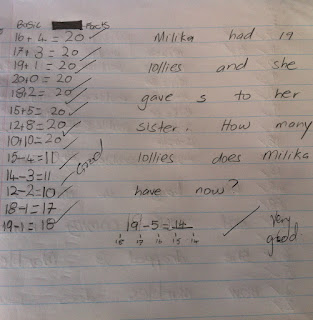 Basic Facts
16+4=20
17+3=20
19+1=20
20+0=20
18+2=20
15+5=20
12+8=20
10+10=20
15-4=11
14-3=11
12-2=10
18-1=17
19-1=18
Good
Milika had 19
lollies and she
gave 5 to her
sister. How many
lollies does Milika
have now?
19-5=14
18 17 16 15 14
Very
good